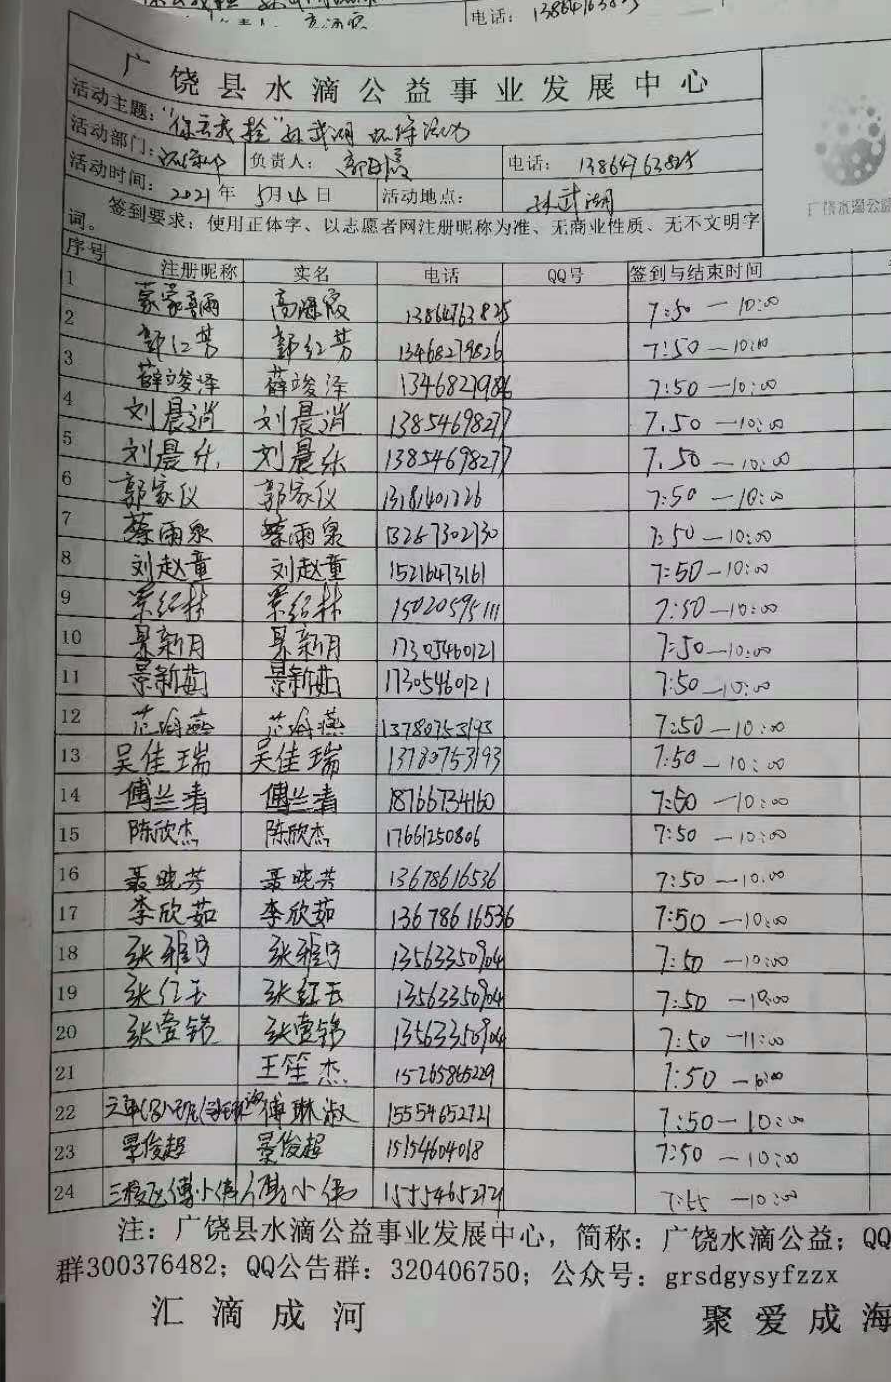 电话：13864763825
广饶县水滴公益事业发展中心
活动主题：“你丢我捡”孙武湖 活动
活动部门： 负责人： 电话：13864763825
活动时间：2021年5月4日 活动地点：孙武湖
签到要求：使用正体字、以志愿者网注册昵称为准、无商业性质、无不文明字
词。
广饶水滴公益
序号 注册昵称 实名 电话 QQ号 签到与结束时间
1 蒙蒙喜雨 高海霞 13864763825 7:50—10:00
2 郭红芳 郭红芳 13468279826 7:50—10:00
3 薛竣泽 薛竣泽 7:50—10:00
4 刘晨消 刘晨消 13854698277 7.50—10:00
5 刘晨 刘晨 13854698277 7.50—10:00
6 郭家仪 郭家仪 7:50—10:00
7 蔡雨泉 蔡雨泉 13267302730 7:50—10:00
8 刘赵童 刘赵童 15216473161 7:50—10:00
9 15020595111 7:50—10:00
10 景新月 景新月 17305460121 7:50—10:00
11 景新茹 景新茹 17305460121 7:50—10:00
12 13780753193 7:50—10:00
13 吴佳瑞 吴佳瑞 13780753193 7:50—10:00
14 傅兰清 傅兰清 18766734160 7:50—10:00
15 陈欣杰 陈欣杰 17661250806 7:50—10:00
16 聂晓芳 聂晓芳 13678616536 7:50—10:00
17 李欣茹 李欣茹 13678616536 7:50—10:00
18 张雅 张雅 13563350904 7:50—10:00
19 张红玉 张红玉 13563350904 7:50—10:00
20 张壹锦 张壹锦 13563350904 7:50—11:00
21 王笙杰 15265865229 7:50
22 傅琳淑 15554652721 7:50—10:00
23 景俊超 景俊超 15154604018 7:50—10:00
24 15554652721 7:55—10:00
注：广饶县水滴公益事业发展中心，简称：广饶水滴公益；QQ
群300376482；QQ公告群：320406750；公众号：grsdgysyfzzx
汇滴成河 聚爱成海